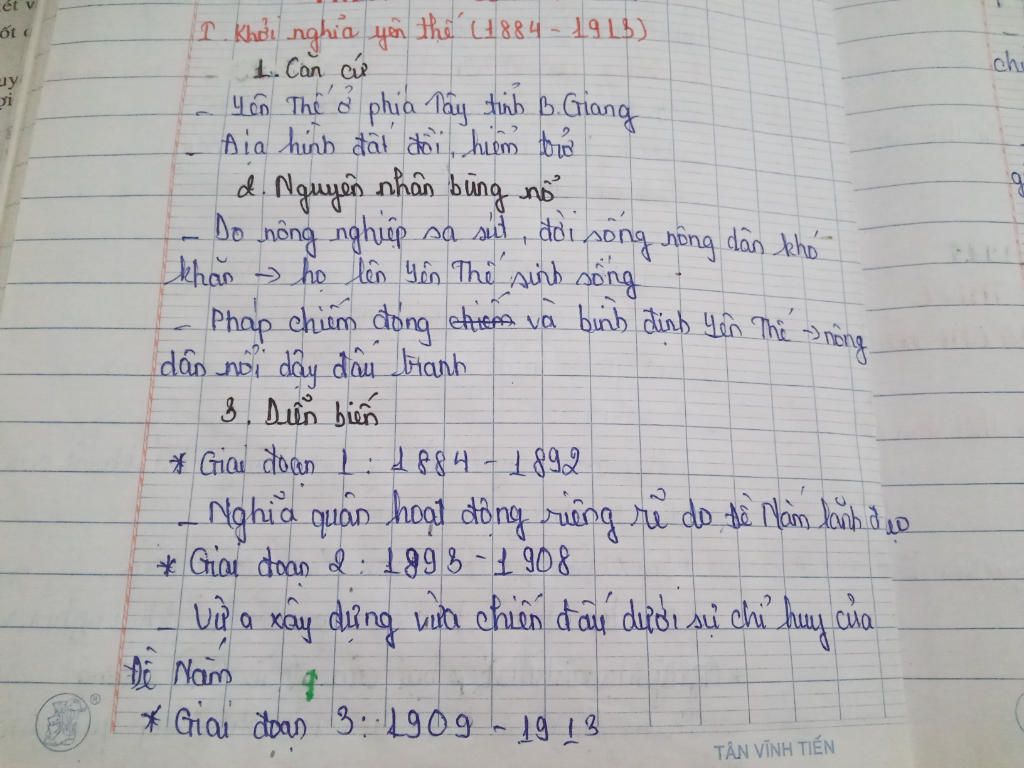 I. Khởi nghĩa yên thế (1884 - 1913)
1. Căn cứ
- Yên Thế ở phía Tây tỉnh B. Giang
- Địa hình đất đồi, hiểm trở
2. Nguyên nhân bùng nổ
- Do nông nghiệp sa sút, đời sống nông dân khó
khăn → họ lên Yên Thế sinh sống
- Pháp chiếm đóng chiếm và bình định Yên Thế → nông
dân nổi dậy đấu tranh
3. Diễn biến
* Giai đoạn 1 : 1884 - 1892
- Nghĩa quân hoạt động riêng rẽ do Đề Nắm lãnh đạo
* Giai đoạn 2 : 1893 - 1908
- Vừa xây dựng vừa chiến đấu dưới sự chỉ huy của
Đề Nắm
* Giai đoạn 3 : 1909 - 1913
TÂN VĨNH TIẾN